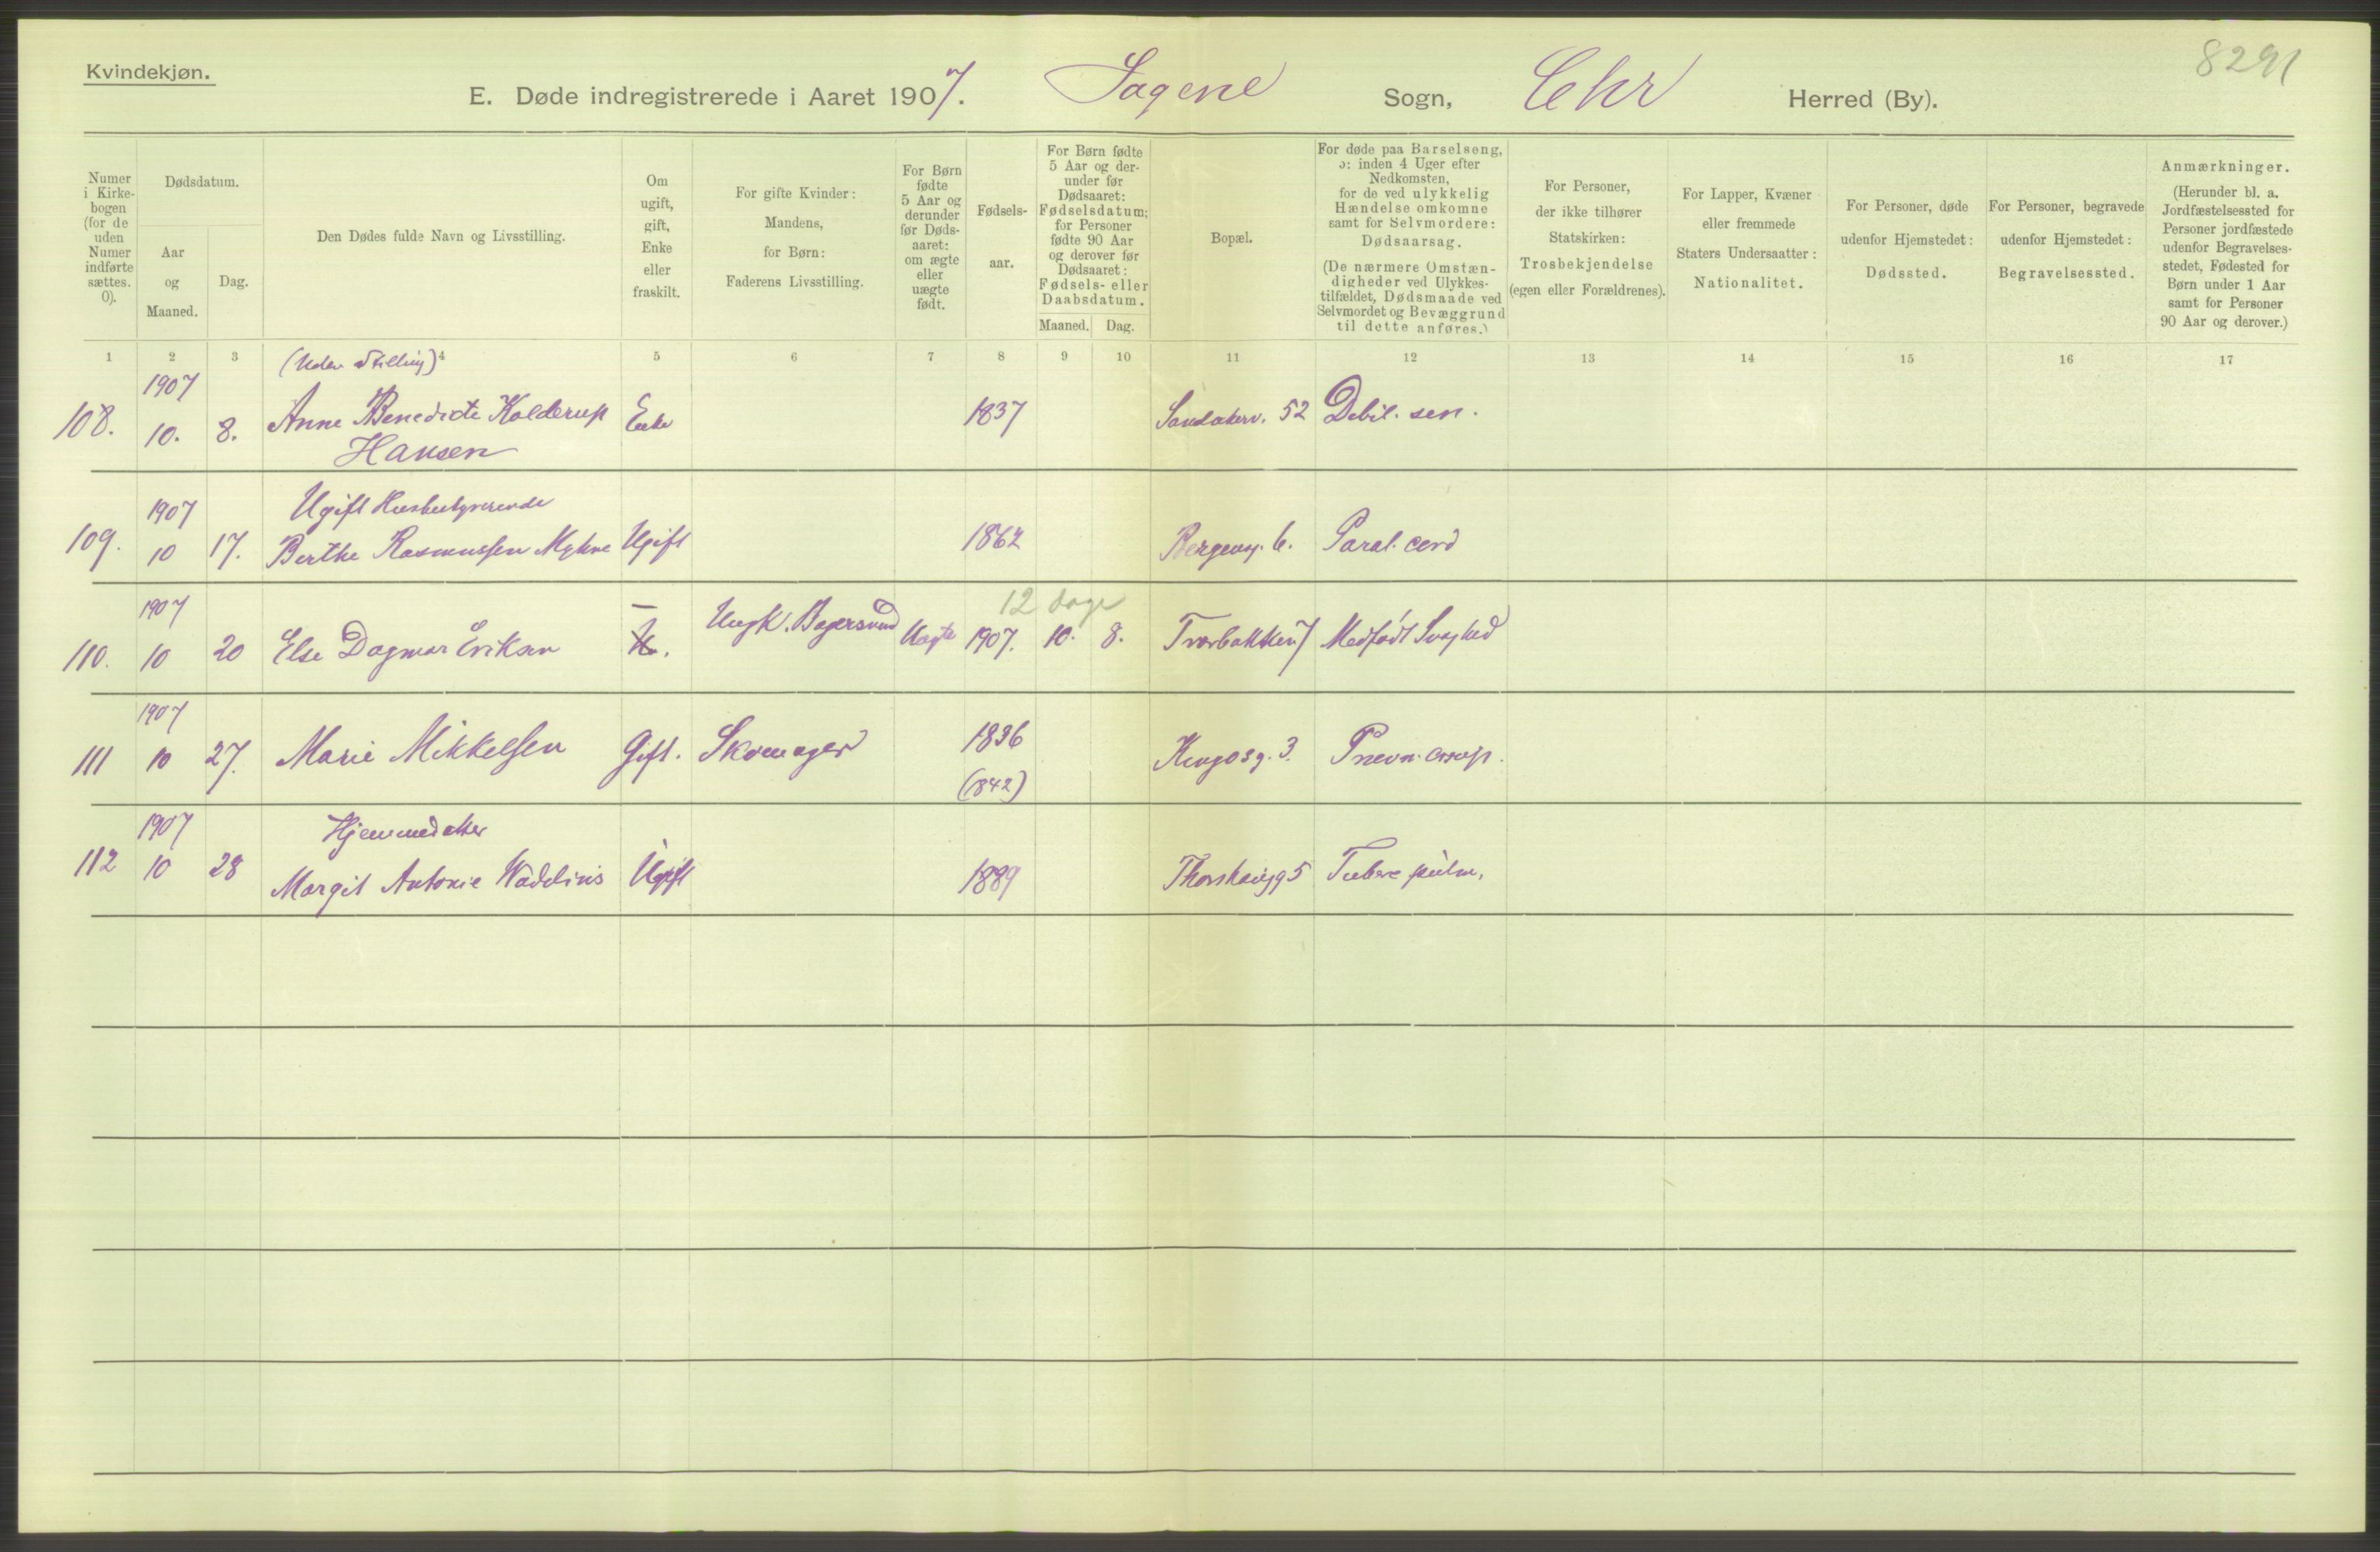 Kvindekjøn.
8291
E. Døde indregistrerede i Aaret 1907. Sagene Sogn, Chr Herred (By).
Numer i Kirkebogen (for de uden Numer indførte sættes. 0).
Dødsdatum.
Aar og Maaned.
Dag.
Den Dødes fulde Navn og Livsstilling.
Om ugift, gift, Enke eller fraskilt.
For gifte Kvinder: Mandens, for Børn: Faderens Livsstilling.
For Børn fødte 5 Aar og derunder før Dødsaaret: om ægte eller uægte født.
Fødselsaar.
For Børn fødte 5 Aar og derunder før Dødsaaret: Fødselsdatum; for Personer fødte 90 Aar og derover før Dødsaaret: Fødsels- eller Daabsdatum.
Maaned. Dag.
Bopæl.
For døde paa Barselseng, ɔ: inden 4 Uger efter Nedkomsten, for de ved ulykkelig Hændelse omkomne samt for Selvmordere: Dødsaarsag. (De nærmere Omstændigheder ved Ulykkestilfældet, Dødsmaade ved Selvmordet og Bevæggrund til dette anføres.)
For Personer, der ikke tilhører Statskirken: Trosbekjendelse (egen eller Forældrenes).
For Lapper, Kvæner eller fremmede Staters Undersaatter: Nationalitet.
For Personer, døde udenfor Hjemstedet: Dødssted.
For Personer, begravede udenfor Hjemstedet: Begravelsessted.
Anmærkninger. (Herunder bl. a. Jordfæstelsessted for Personer jordfæstede udenfor Begravelsesstedet, Fødested for Børn under 1 Aar samt for Personer 90 Aar og derover.)
1 2 3 4 5 6 7 8 9 10 11 12 13 14 15 16 17
(Uden Stilling)
1907
108. 10. 8. Anne Benedicte Kolderup Enke 1837 Sandakerv. 52 Debil. sen.
Hansen
1907 Ugift Husbestyrerinde
109. 10 17. Berthe Rasmussen Ugift 1862 Bergensg. 6. Paral. cord
1907 — 12 dage
110. 10 20 Else Dagmar Eriksen U. Ungk. Bagersvend Uægte 1907. 10. 8. Tværbakken 7 Medfødt Svaghed
1907
111 10 27. Marie Mikkelsen Gift. Skomager 1836 Kingosg. 3. Pnevn. croup.
(1842)
1907 Hjemmedatter
112 10 28 Margit Antonie Ugift 1889 Thorshaugg 5 Tuberc pulm.